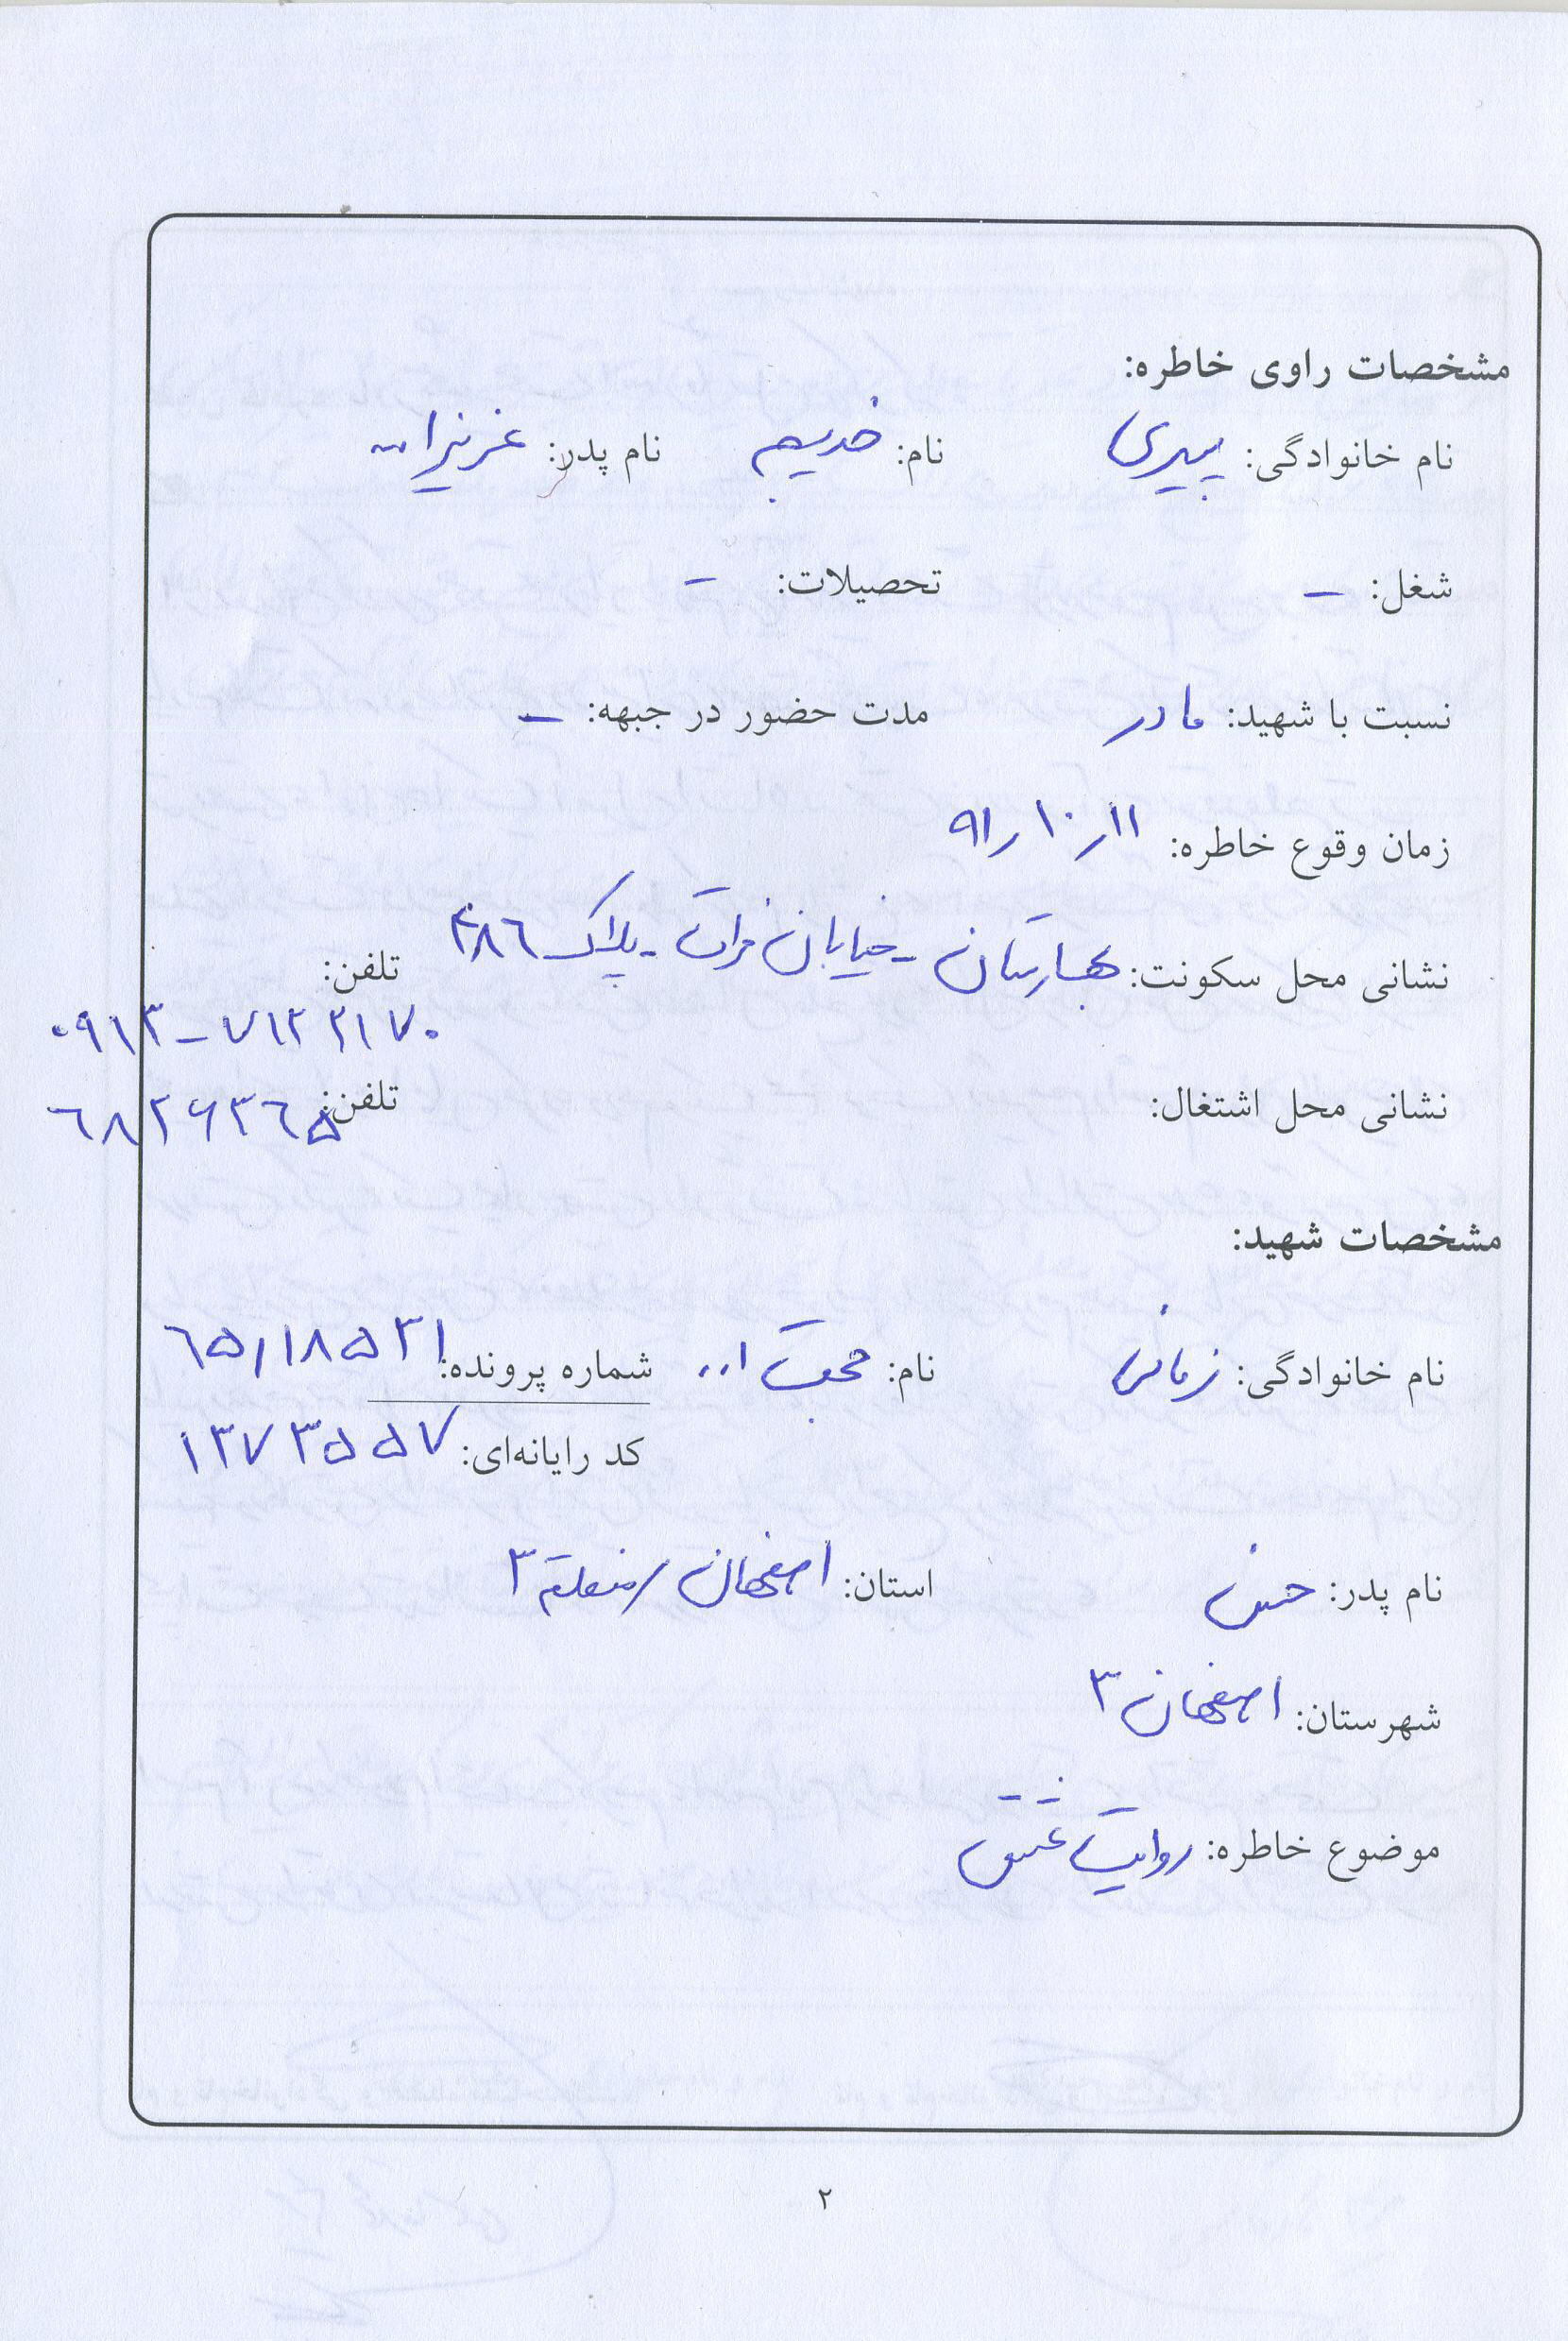 مشخصات راوی خاطره:
نام خانوادگی: پیری نام: خدیجه نام پدر: عزیزاله
شغل: – تحصیلات: –
نسبت با شهید: مادر مدت حضور در جبهه: –
زمان وقوع خاطره: ۹۱/۱۰/۱۱
نشانی محل سکونت: بهارستان – خیابان فرات – پلاک ۴۸۶ تلفن:
۰۹۱۳–۷۱۲۲۱۷۰
نشانی محل اشتغال: تلفن: ۶۸۲۶۳۶۵
مشخصات شهید:
نام خانوادگی: زمانی نام: محبت ا... شماره پرونده: ۶۵/۱۸۵۲۱
کد رایانه‌ای: ۱۳۷۳۵۵۷
نام پدر: حسن استان: اصفهان / منطقه ۳
شهرستان: اصفهان ۳
موضوع خاطره: روایت عشق
۲